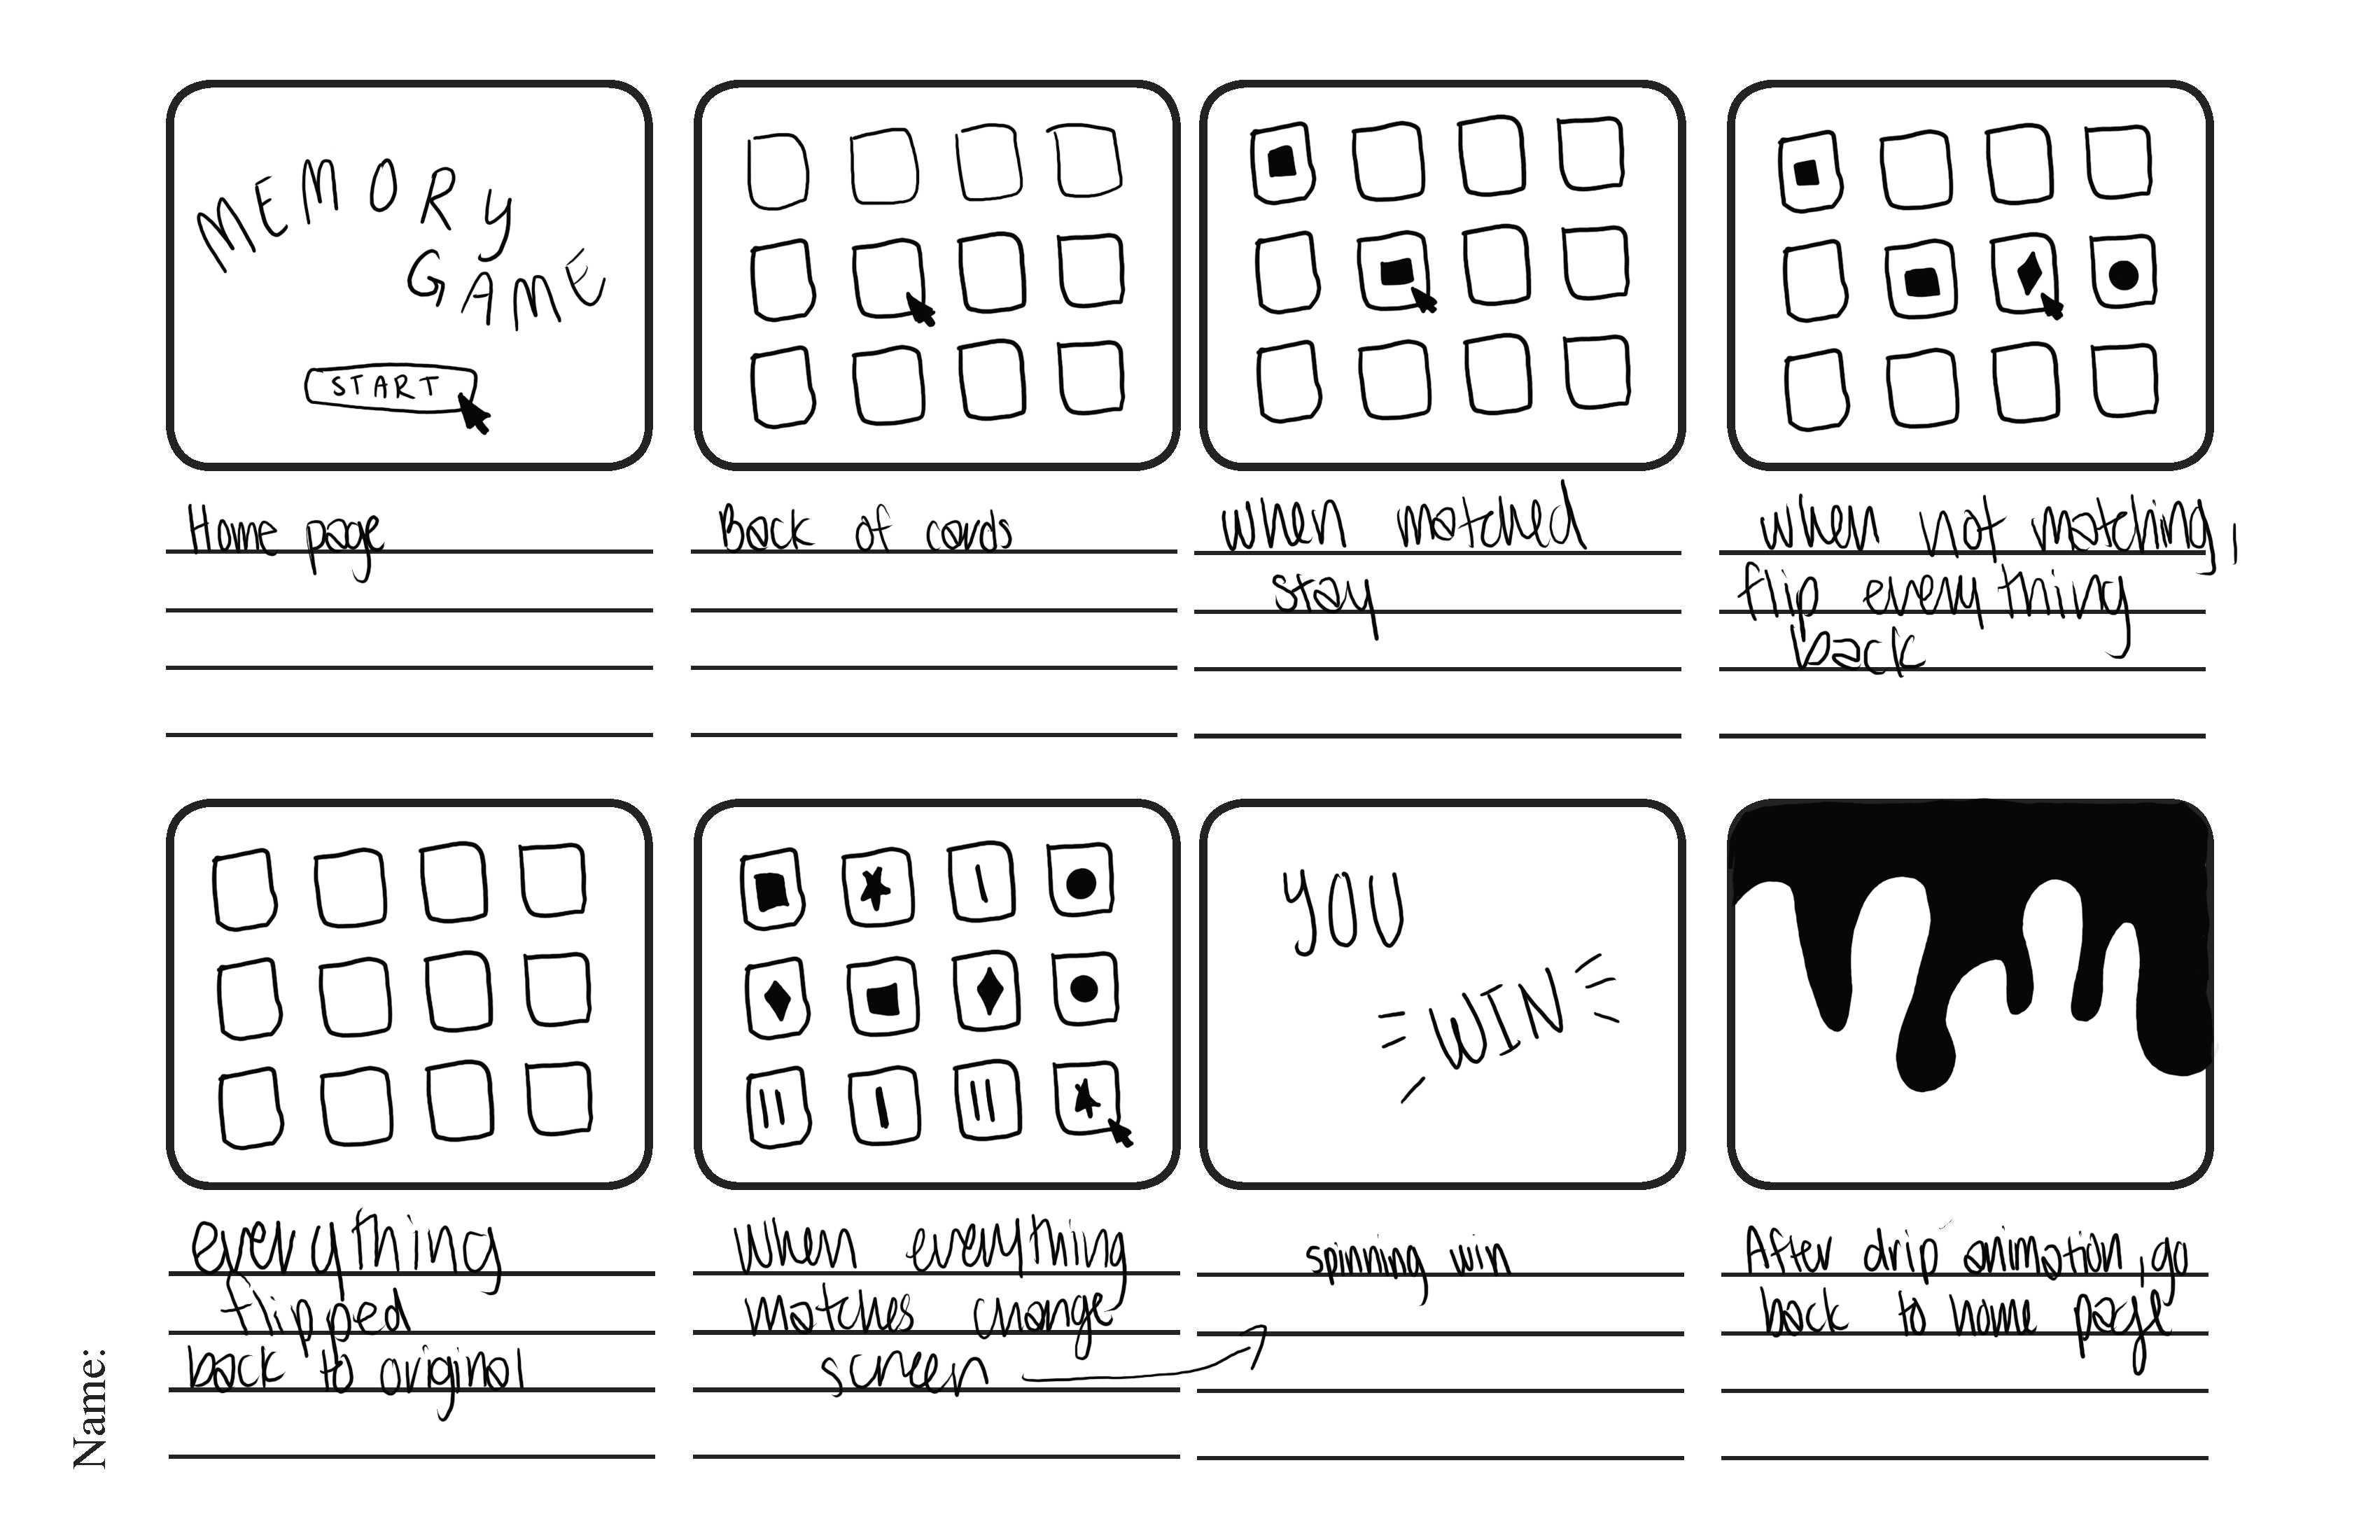 MEMORY
GAME
START
Home page
Back of cards
when matched
stay
when not matching,
flip everything
back
everything
flipped
back to original
When everything
matches change
screen
YOU
WIN
spinning win
After drip animation, go
back to home page
Name: